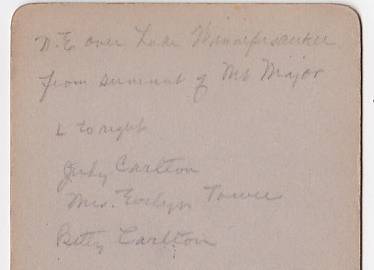 N.E over Lake Winnipesaukee
from summit of Mt Major
L to right
Judy Carlton
Mrs. Evelyn Towle
Betty Carlton